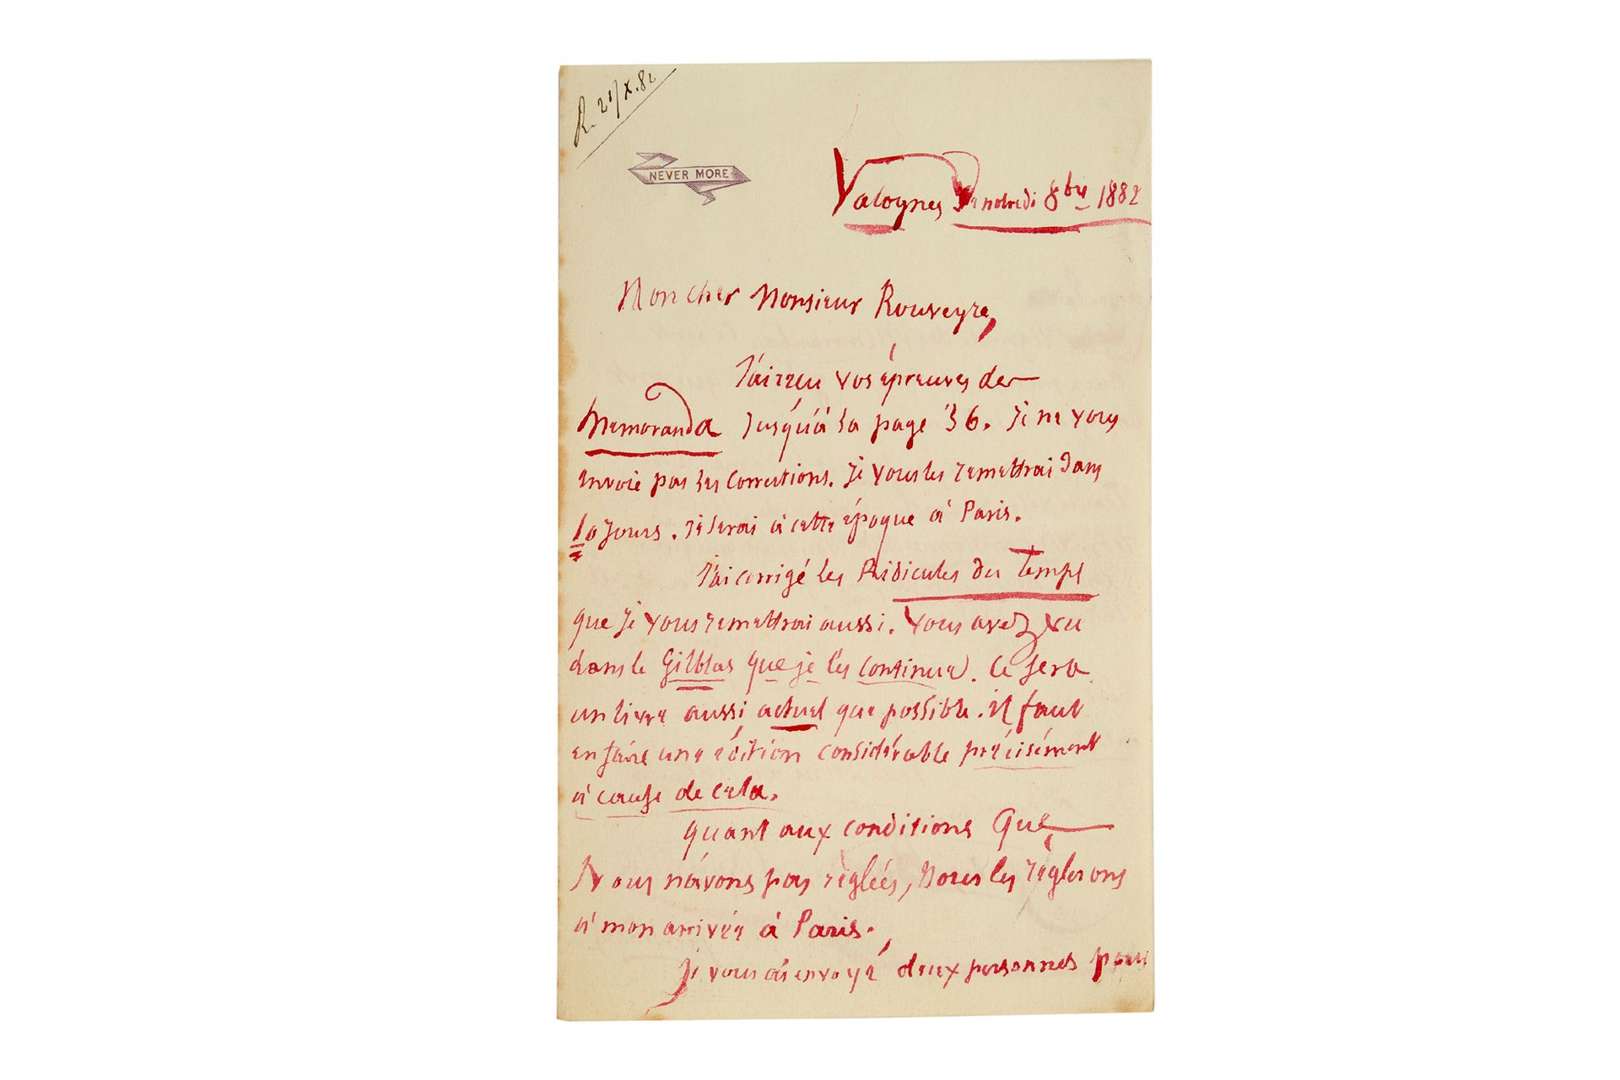 R. 21/X.82
NEVER MORE
Valognes Vendredi 8bre 1882
Mon cher Monsieur Rouveyre,
J'ai reçu vos épreuves des
Memoranda jusqu'à la page 36. Je ne vous
envoie pas les corrections. Je vous les remettrai dans
10 jours. Je serai à cette époque à Paris.
J'ai corrigé les Ridicules du Temps
que je vous remettrai aussi. Vous avez vu
dans le Gilblas que je les continue. Ce sera
un livre aussi actuel que possible. il faut
en faire une édition considérable précisément
à cause de cela.
quant aux conditions que
Nous n'avons pas réglées, Nous les règlerons
à mon arrivée à Paris.
Je vous ai envoyé deux personnes pour